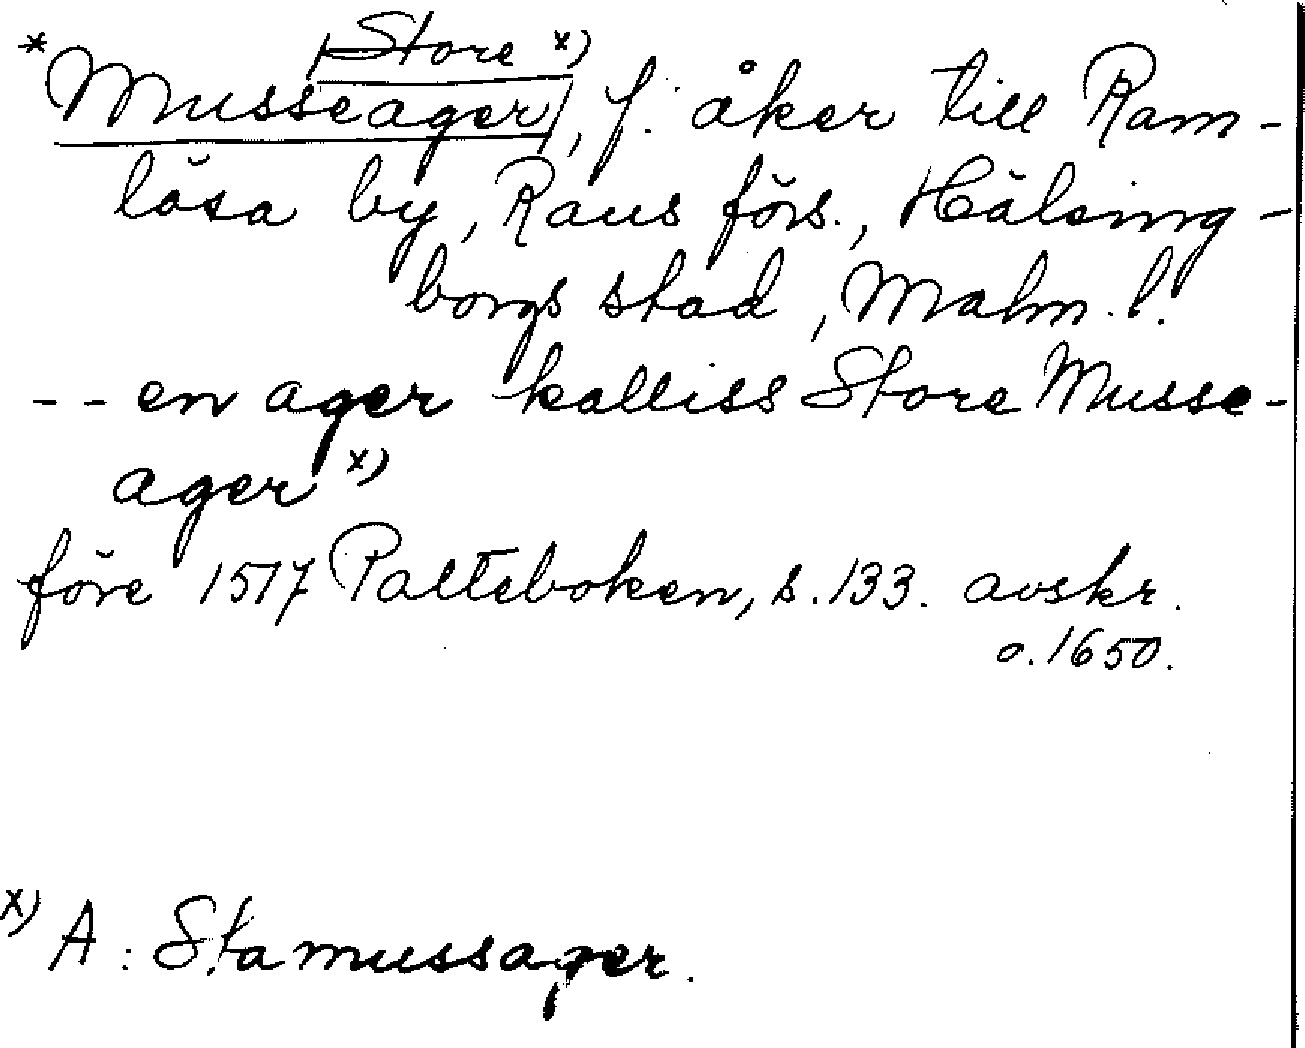 Store x)
*Musseager, f. åker till Ram-
lösa by, Raus förs., Hälsing-
borgs stad, Malm. l.
-- en ager kalliss Store Musse-
ager x)
före 1517 Palteboken, s. 133. avskr.
o. 1650.
x) A: Stamussager.